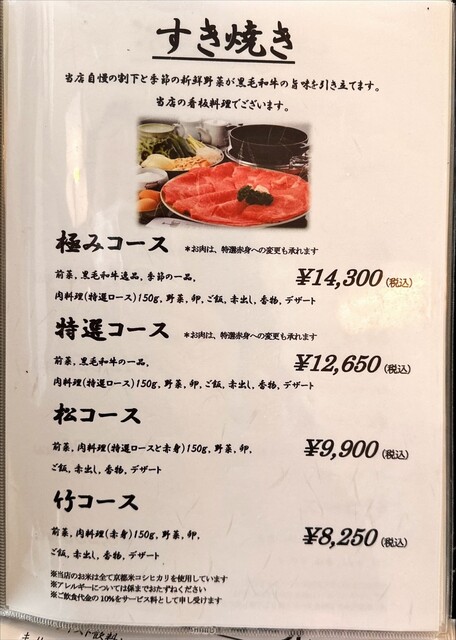 すき焼き
当店自慢の割下と季節の新鮮野菜が黒毛和牛の旨味を引き立てます。
当店の看板料理でございます。
極みコース ＊お肉は、特選赤身への変更も承れます
前菜, 黒毛和牛逸品, 季節の一品,
¥14,300(税込)
肉料理(特選ロース)150g, 野菜, 卵, ご飯, 赤出し, 香物, デザート
特選コース ＊お肉は、特選赤身への変更も承れます
前菜, 黒毛和牛の一品,
¥12,650(税込)
肉料理(特選ロース)150g, 野菜, 卵, ご飯, 赤出し, 香物, デザート
松コース
前菜, 肉料理(特選ロースと赤身)150g, 野菜, 卵,
¥9,900(税込)
ご飯, 赤出し, 香物, デザート
竹コース
前菜, 肉料理(赤身)150g, 野菜, 卵,
¥8,250(税込)
ご飯, 赤出し, 香物, デザート
※当店のお米は全て京都米コシヒカリを使用しています
※アレルギーについては係までおたずねください
※ご飲食代金の10%をサービス料として申し受けます